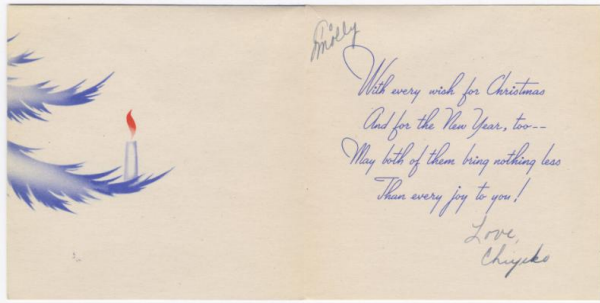 Molly
With every wish for Christmas
And for the New Year, too--
May both of them bring nothing less
Than every joy to you!
Love,
Chiyeko